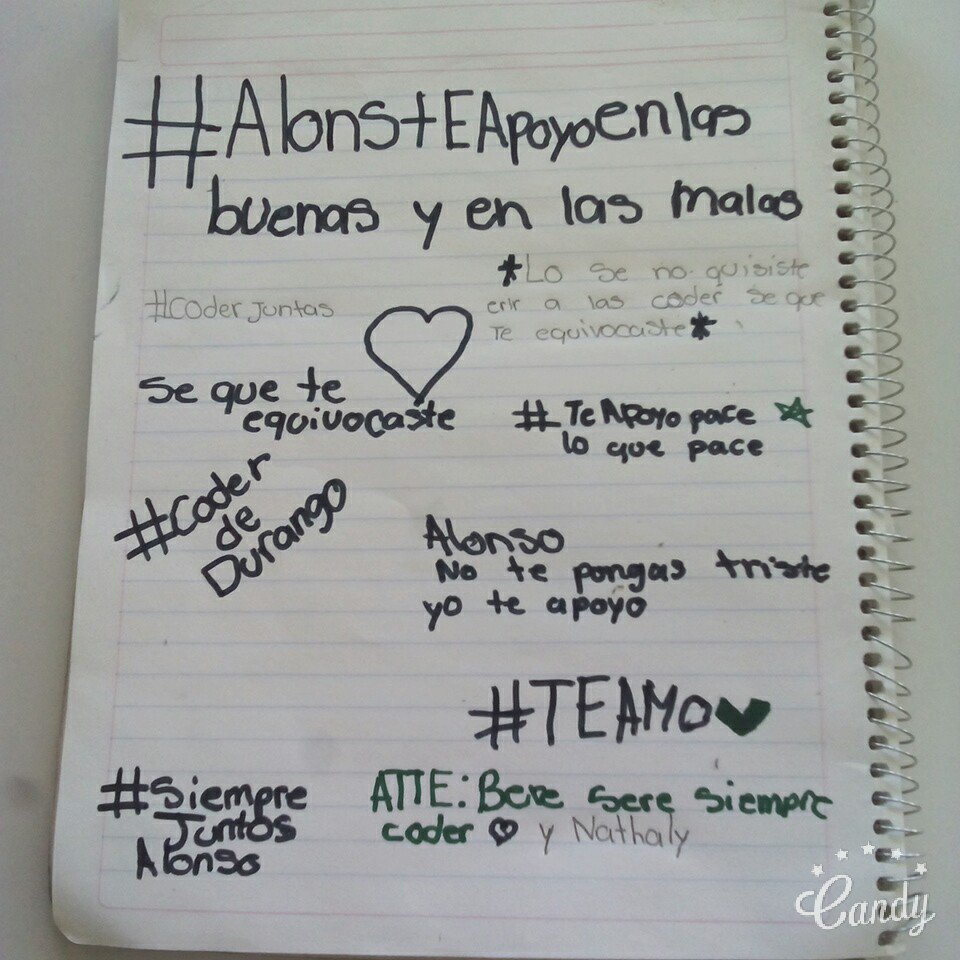 #AlonstEApoyoenlas
buenas y en las malas
*Lo se no quisiste
erir a las coder se que
Te equivocaste*
#Coder Juntas
se que te
equivocaste
# Te Apoyo pace
lo que pace
#Coder
de
Durango
Alonso
No te pongas triste
yo te apoyo
#TEAMO
#Siempre
Juntos
Alonso
ATTE: Bere sere siempre
coder y Nathaly
Candy